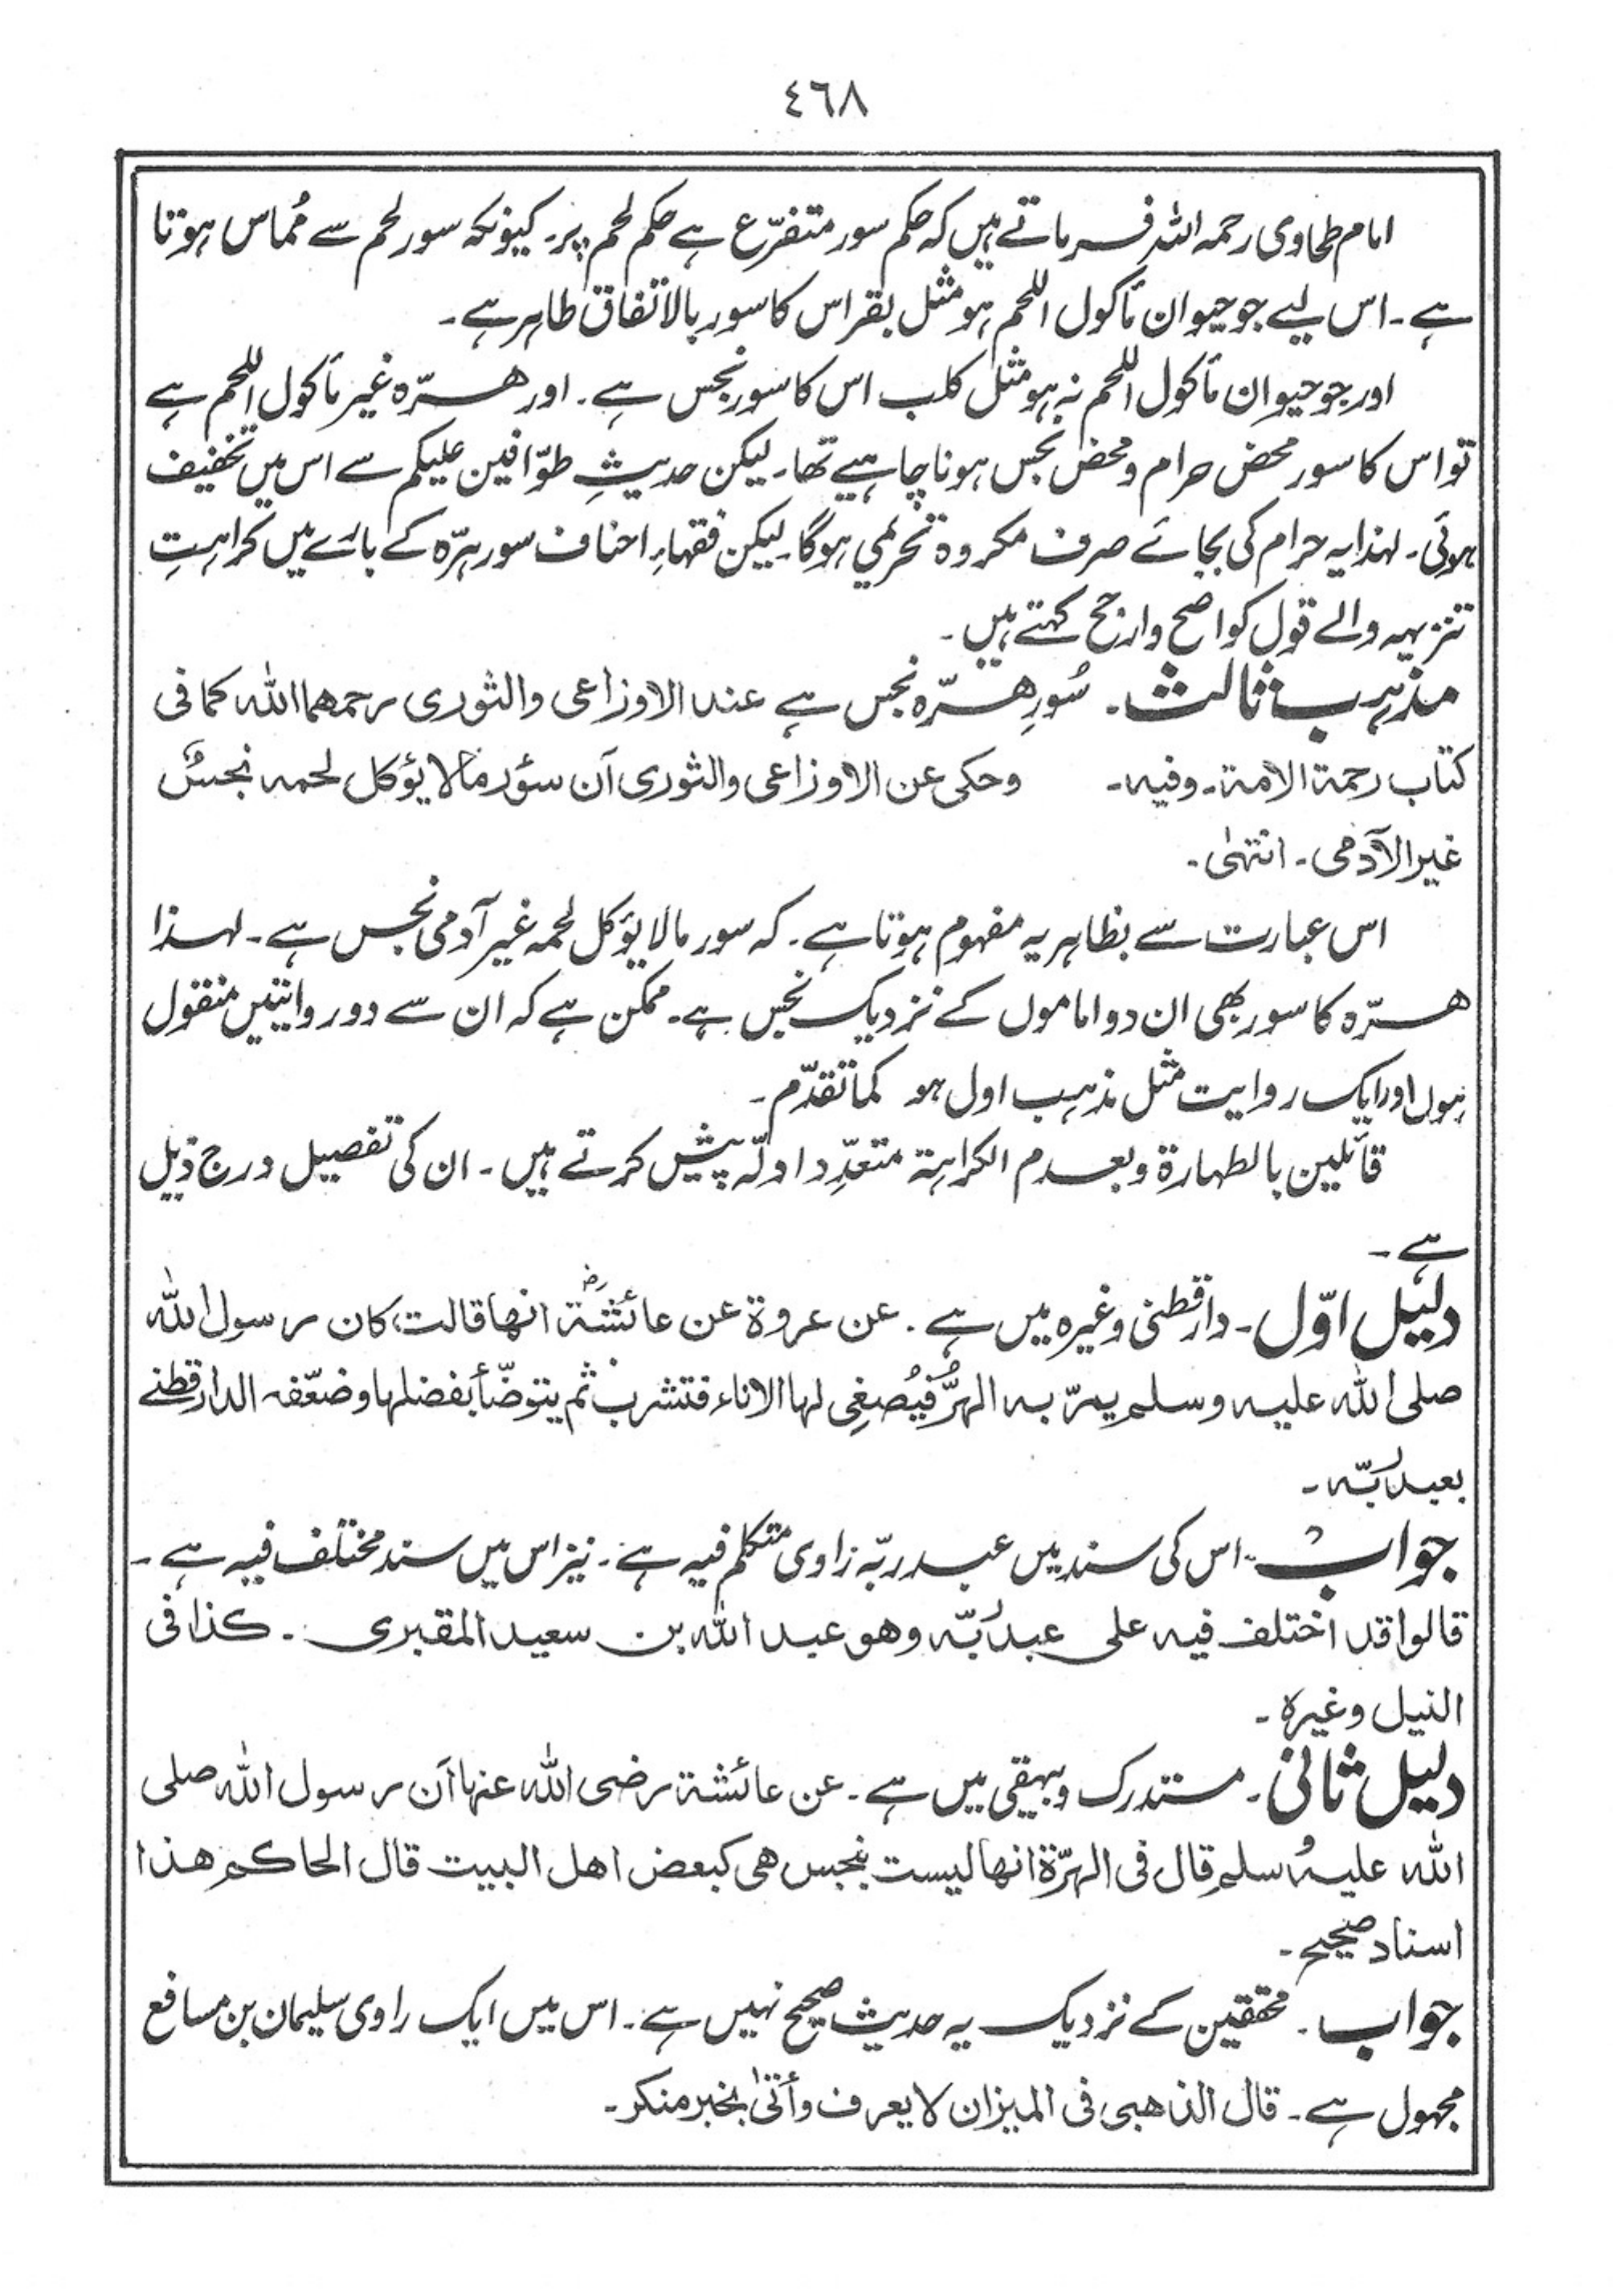 ٤٦٨
امام طحاوی رحمہ اللہ فرماتے ہیں کہ حکم سور متفرّع ہے حکم لحم پر۔ کیونکہ سور لحم سے مُماس ہوتا
ہے۔ اس لیے جو حیوان مأکول اللحم ہو مثل بقر اس کا سور بالاتفاق طاہر ہے۔
اور جو حیوان مأکول اللحم نہ ہو مثل کلب اس کا سور نجس ہے۔ اور ھرّہ غیر مأکول اللحم ہے
تو اس کا سور محض حرام و محض نجس ہونا چاہیے تھا۔ لیکن حدیثِ طوّافین علیکم سے اس میں تخفیف
ہوئی۔ لہٰذا یہ حرام کی بجائے صرف مکروہ تحریمی ہوگا۔ لیکن فقہاءِ احناف سور ہرّہ کے بارے میں کراہتِ
تنزیہہ والے قول کو اصح و ارجح کہتے ہیں۔
مذہب ثالث۔ سُورِ ھرّہ نجس ہے عند الاوزاعی والثوری رحمھما اللہ کما فی
کتاب رحمۃ الامۃ۔ وفیہ۔ وحکی عن الاوزاعی والثوری اَن سؤر مالا یؤکل لحمہ نجسٌ
غیر الآدمی۔ انتہیٰ۔
اس عبارت سے بظاہر یہ مفہوم ہوتا ہے۔ کہ سور مالا یؤکل لحمہ غیر آدمی نجس ہے۔ لہٰذا
ھرّہ کا سور بھی ان دو اماموں کے نزدیک نجس ہے۔ ممکن ہے کہ ان سے دو روایتیں منقول
ہوں اور ایک روایت مثل مذہب اول ہو کما تقدّم۔
قائلین بالطہارۃ وبعدم الکراہۃ متعدِّد ادلّہ پیش کرتے ہیں۔ ان کی تفصیل درج ذیل
ہے۔
دلیل اوّل۔ دارقطنی وغیرہ میں ہے۔ عن عروۃ عن عائشۃؓ انھا قالت کان رسول اللہ
صلی اللہ علیہ وسلم یمرّ بہ الہرُّ فیُصغِی لہا الاناء فتشرب ثم یتوضّأ بفضلہا وضعّفہ الدارقطنے
بعبدربّہ۔
جواب۔ اس کی سند میں عبدربّہ راوی متکلم فیہ ہے۔ نیز اس میں سند مختلف فیہ ہے۔
قالوا قد اختلف فیہ علی عبدربّہ وھو عبد اللہ بن سعید المقبری۔ کذا فی
النیل وغیرہ۔
دلیل ثانی۔ مستدرک وبیہقی میں ہے۔ عن عائشۃ رضی اللہ عنہا اَن رسول اللہ صلی
اللہ علیہ وسلم قال فی الہرّۃ انھا لیست بنجس ھی کبعض اھل البیت قال الحاکم ھذا
اسناد صحیح۔
جواب۔ محققین کے نزدیک یہ حدیث صحیح نہیں ہے۔ اس میں ایک راوی سلیمان بن مسافع
مجہول ہے۔ قال الذھبی فی المیزان لا یعرف وأتیٰ بخبر منکر۔